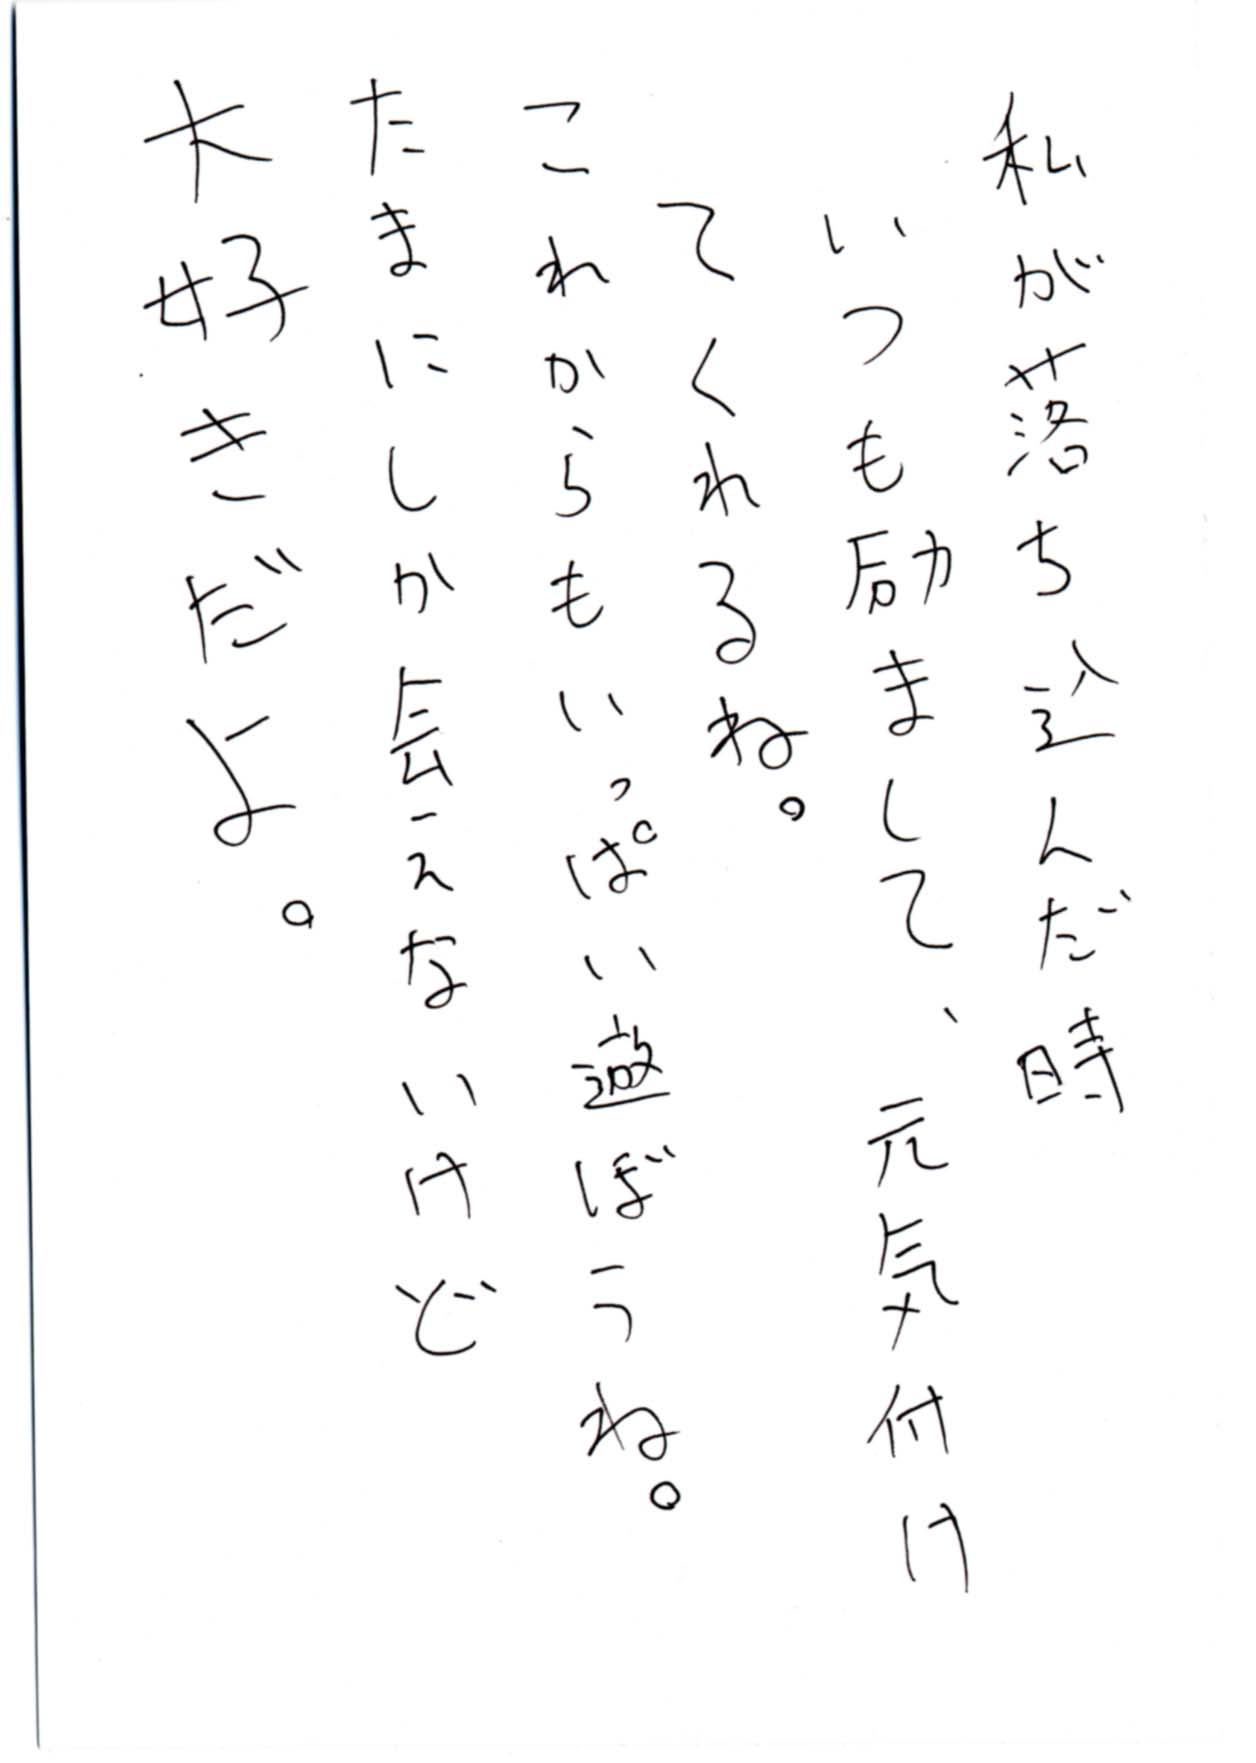 私が落ち込んだ時
いつも励まして、元気付け
てくれるね。
これからもいっぱい遊ぼうね。
たまにしか会えないけど
大好きだよ。